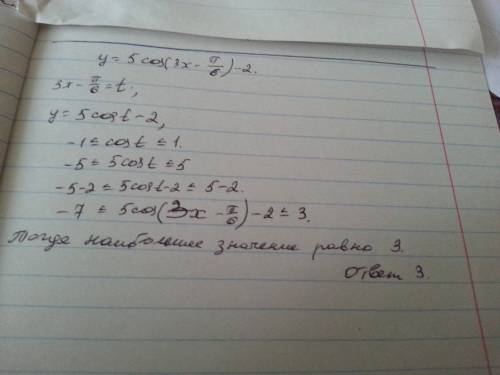 y = 5 cos(3x - π/6) - 2.
3x - π/6 = t;
y = 5 cost - 2,
-1 ≤ cost ≤ 1.
-5 ≤ 5cost ≤ 5
-5-2 ≤ 5cost-2 ≤ 5-2.
-7 ≤ 5cos(3x - π/6) - 2 ≤ 3.
Тогда наибольшее значение равно 3.
Ответ 3.